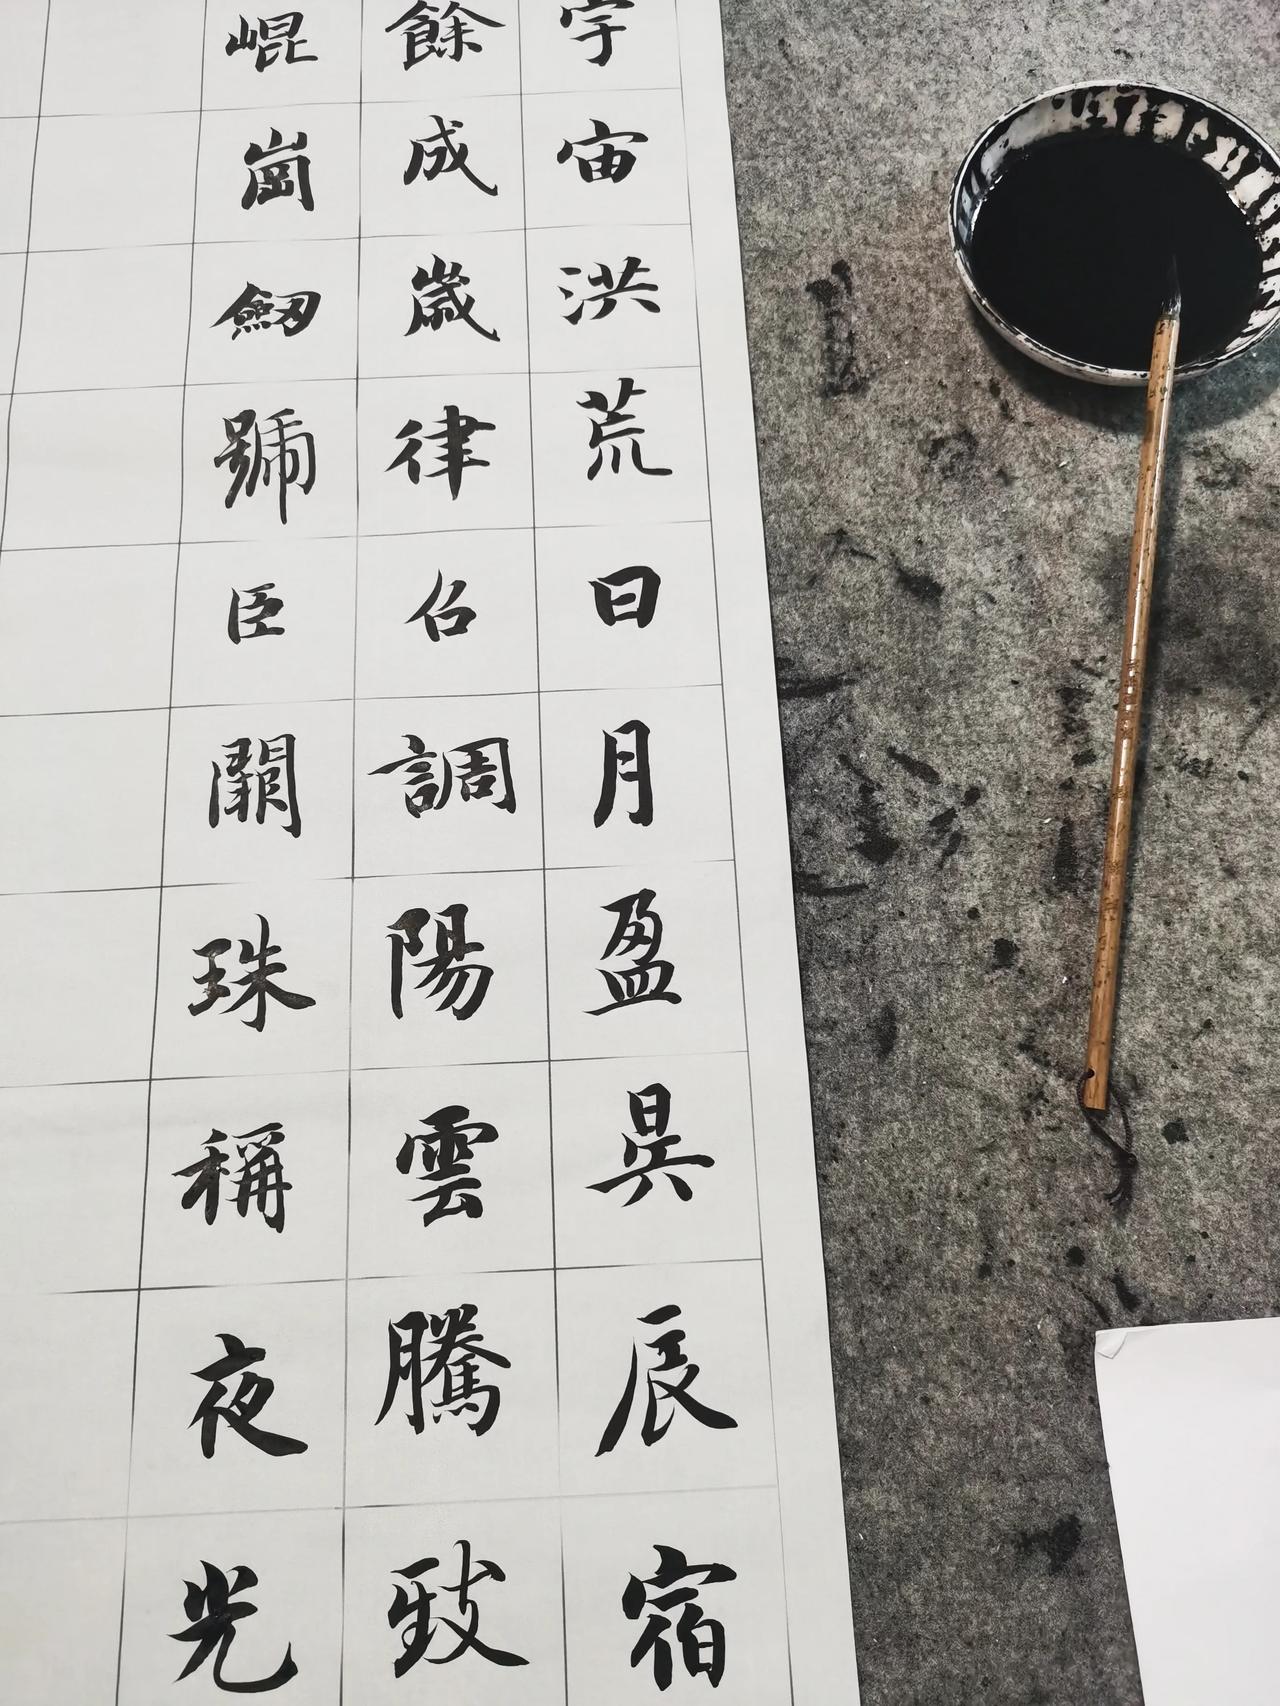 宇宙洪荒日月盈昃辰宿
餘成歲律召調陽雲騰致
崐崗劔號臣闕珠稱夜光